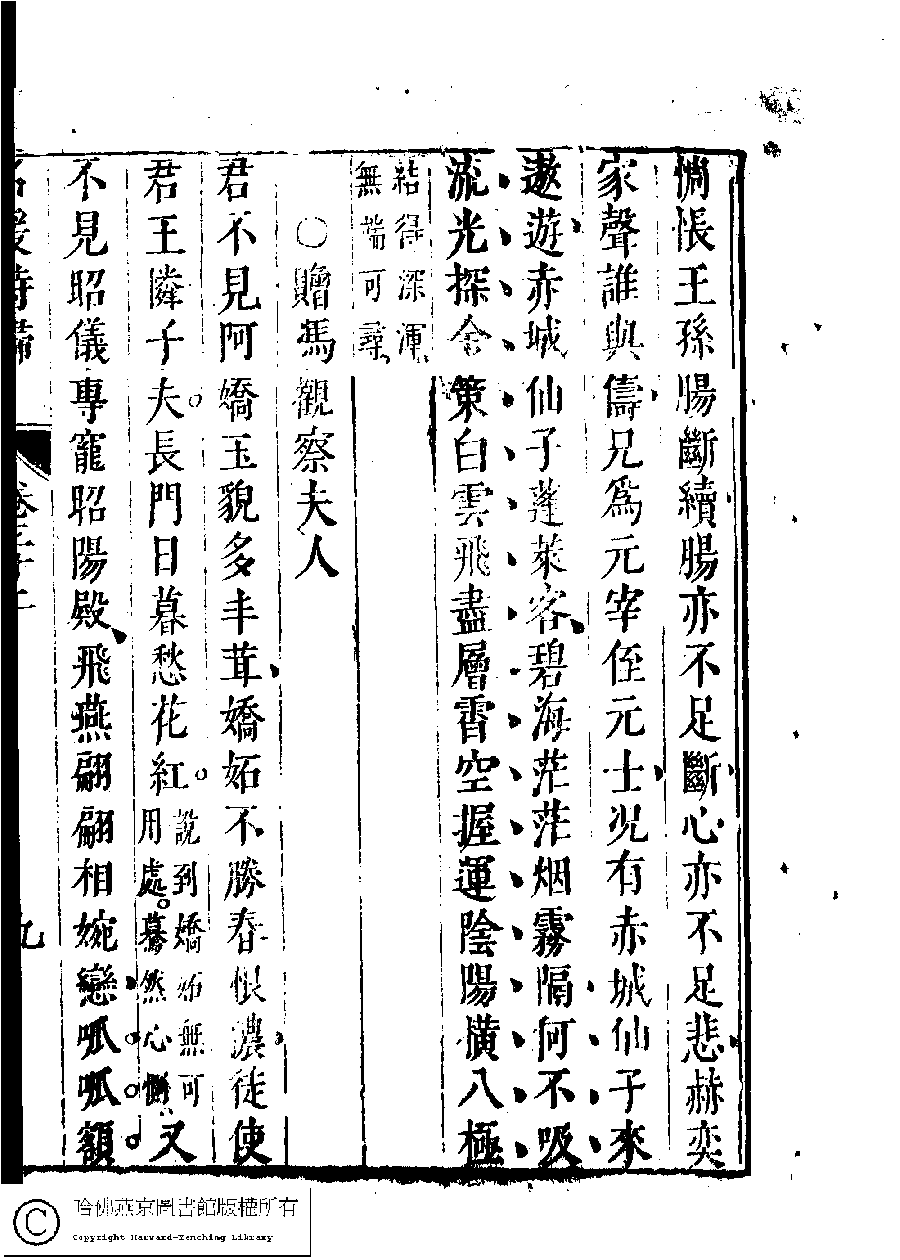 惆悵王孫腸斷續腸亦不足斷心亦不足悲赫奕
家聲誰與儔兄爲元宰侄元士况有赤城仙子來
遨遊赤城仙子蓬萊客碧海茫茫烟霧隔何不吸
流光探金策白雲飛盡層霄空握運陰陽橫八極
結得深渾
無端可尋
○贈馮觀察夫人
君不見阿嬌玉貌多丰茸嬌妬不勝春恨濃徒使
君王隣千夫長門日暮愁花紅
說到嬌妬無可
用處驀然心慚
又
不見昭儀專寵昭陽殿飛燕翩翩相婉戀呱呱額
名媛詩
九
哈佛燕京圖書館版權所有
Copyright Harvard-Yenching Library